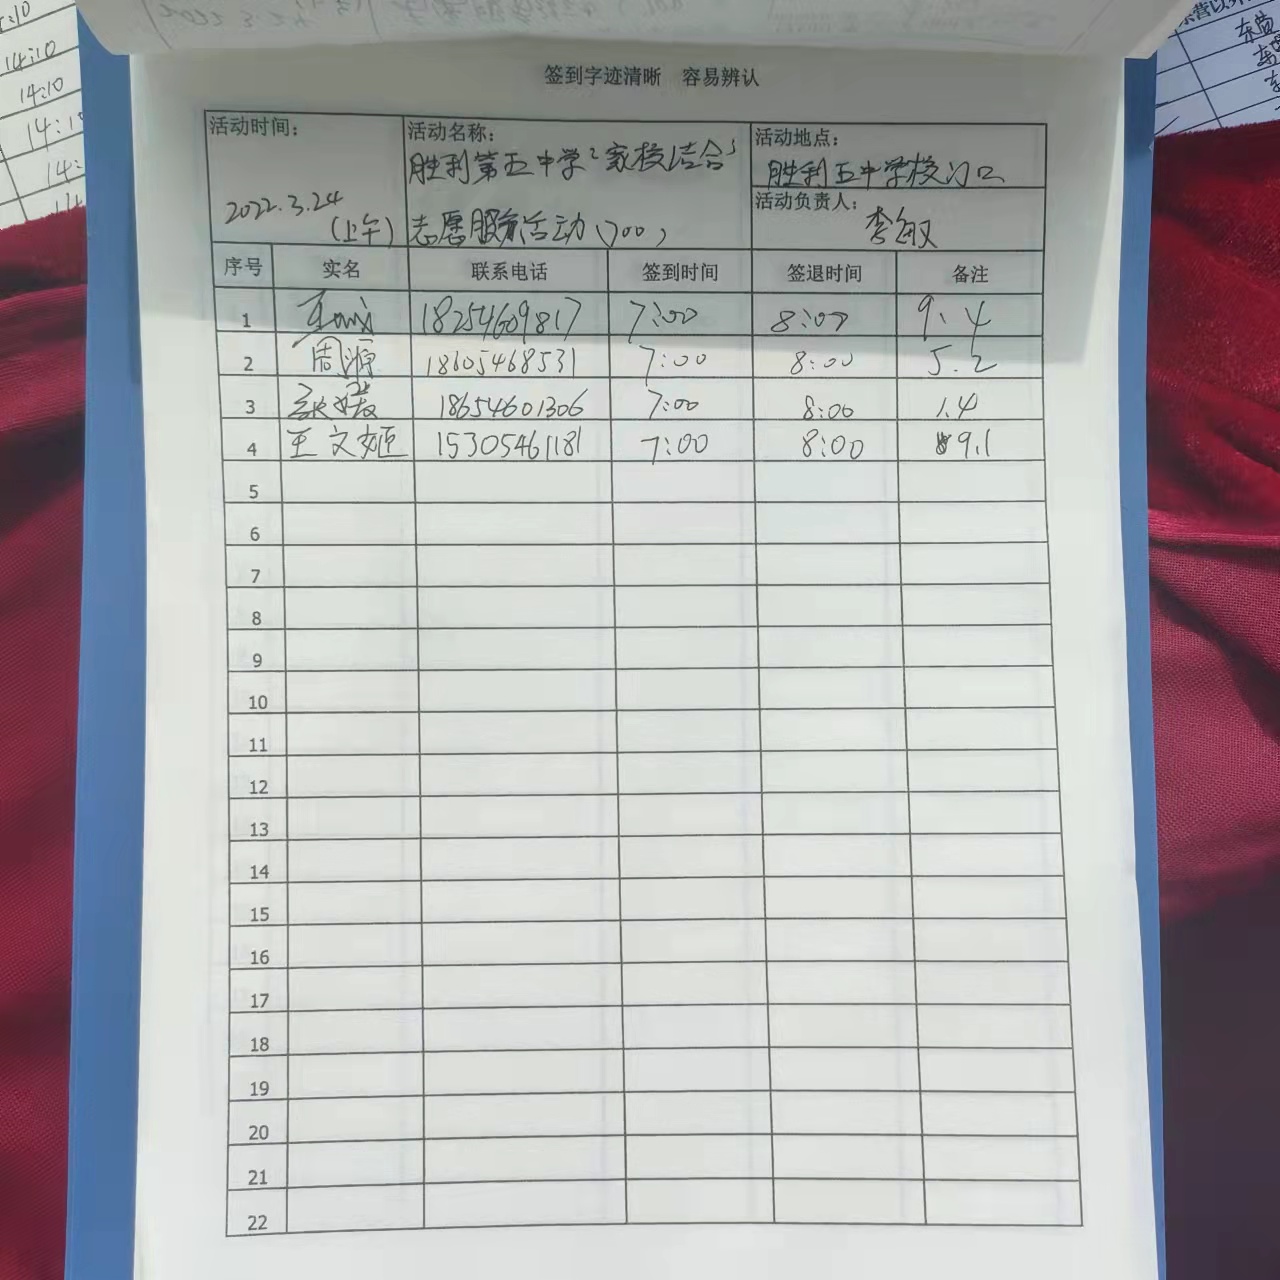 签到字迹清晰 容易辨认
活动时间： 活动名称： 活动地点：
胜利第五中学“家校结合” 胜利五中学校门口
2022.3.24 活动负责人：
(上午) 志愿服务活动(700) 李敏
序号 实名 联系电话 签到时间 签退时间 备注
1 18254609817 7:00 8:00 9.4
2 周源 18605468531 7:00 8:00 5.2
3 18654601306 7:00 8:00 1.4
4 王文姬 15305461181 7:00 8:00 9.1
5
6
7
8
9
10
11
12
13
14
15
16
17
18
19
20
21
22
14:10
14:10